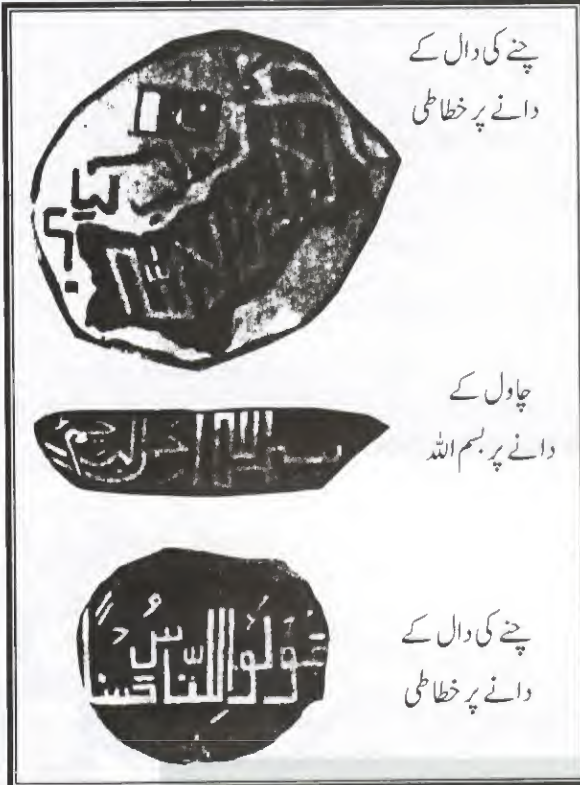 چنے کی دال کے
دانے پر خطاطی
چاول کے
دانے پر بسم اللہ
بسم اللہ الرحمن الرحیم
چنے کی دال کے
دانے پر خطاطی
قولوا للنّاس حسناً